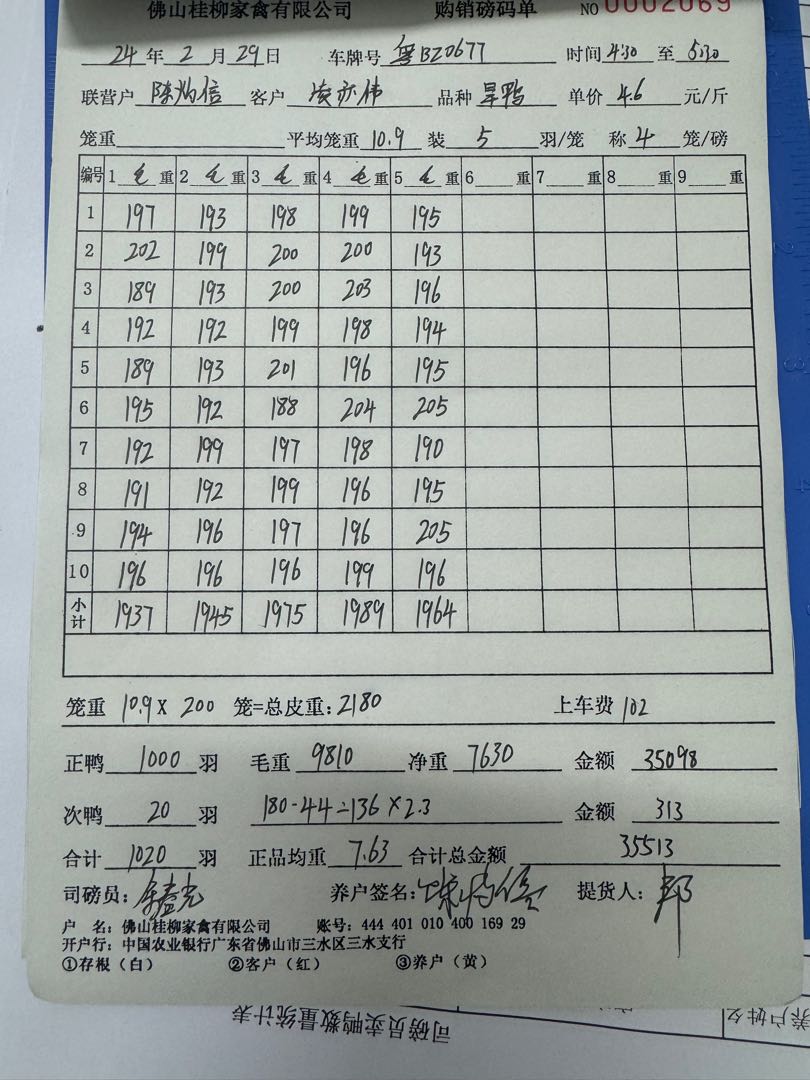 佛山桂柳家禽有限公司 购销磅码单 NO 0002069
24 年 2 月 29 日 车牌号 粤BZ0677 时间 4:30 至 5:30
联营户 陈灿信 客户 凌亦伟 品种 旱鸭 单价 4.6 元/斤
笼重 平均笼重 10.9 装 5 羽/笼 称 4 笼/磅
编号 1 毛 重 2 毛 重 3 毛 重 4 毛 重 5 毛 重 6 重 7 重 8 重 9 重
1 197 193 198 199 195
2 202 199 200 200 193
3 189 193 200 203 196
4 192 192 199 198 194
5 189 193 201 196 195
6 195 192 188 204 205
7 192 199 197 198 190
8 191 192 199 196 195
9 194 196 197 196 205
10 196 196 196 199 196
小计 1937 1945 1975 1989 1964
笼重 10.9 X 200 笼=总皮重: 2180 上车费 102
正鸭 1000 羽 毛重 9810 净重 7630 金额 35098
次鸭 20 羽 180-44=136×2.3 金额 313
合计 1020 羽 正品均重 7.63 合计总金额 35513
司磅员: 养户签名: 提货人: 邦
户 名: 佛山桂柳家禽有限公司 账号: 444 401 010 400 169 29
开户行: 中国农业银行广东省佛山市三水区三水支行
①存根（白） ②客户（红） ③养户（黄）
司磅员卖鸭数量统计表
养户姓名